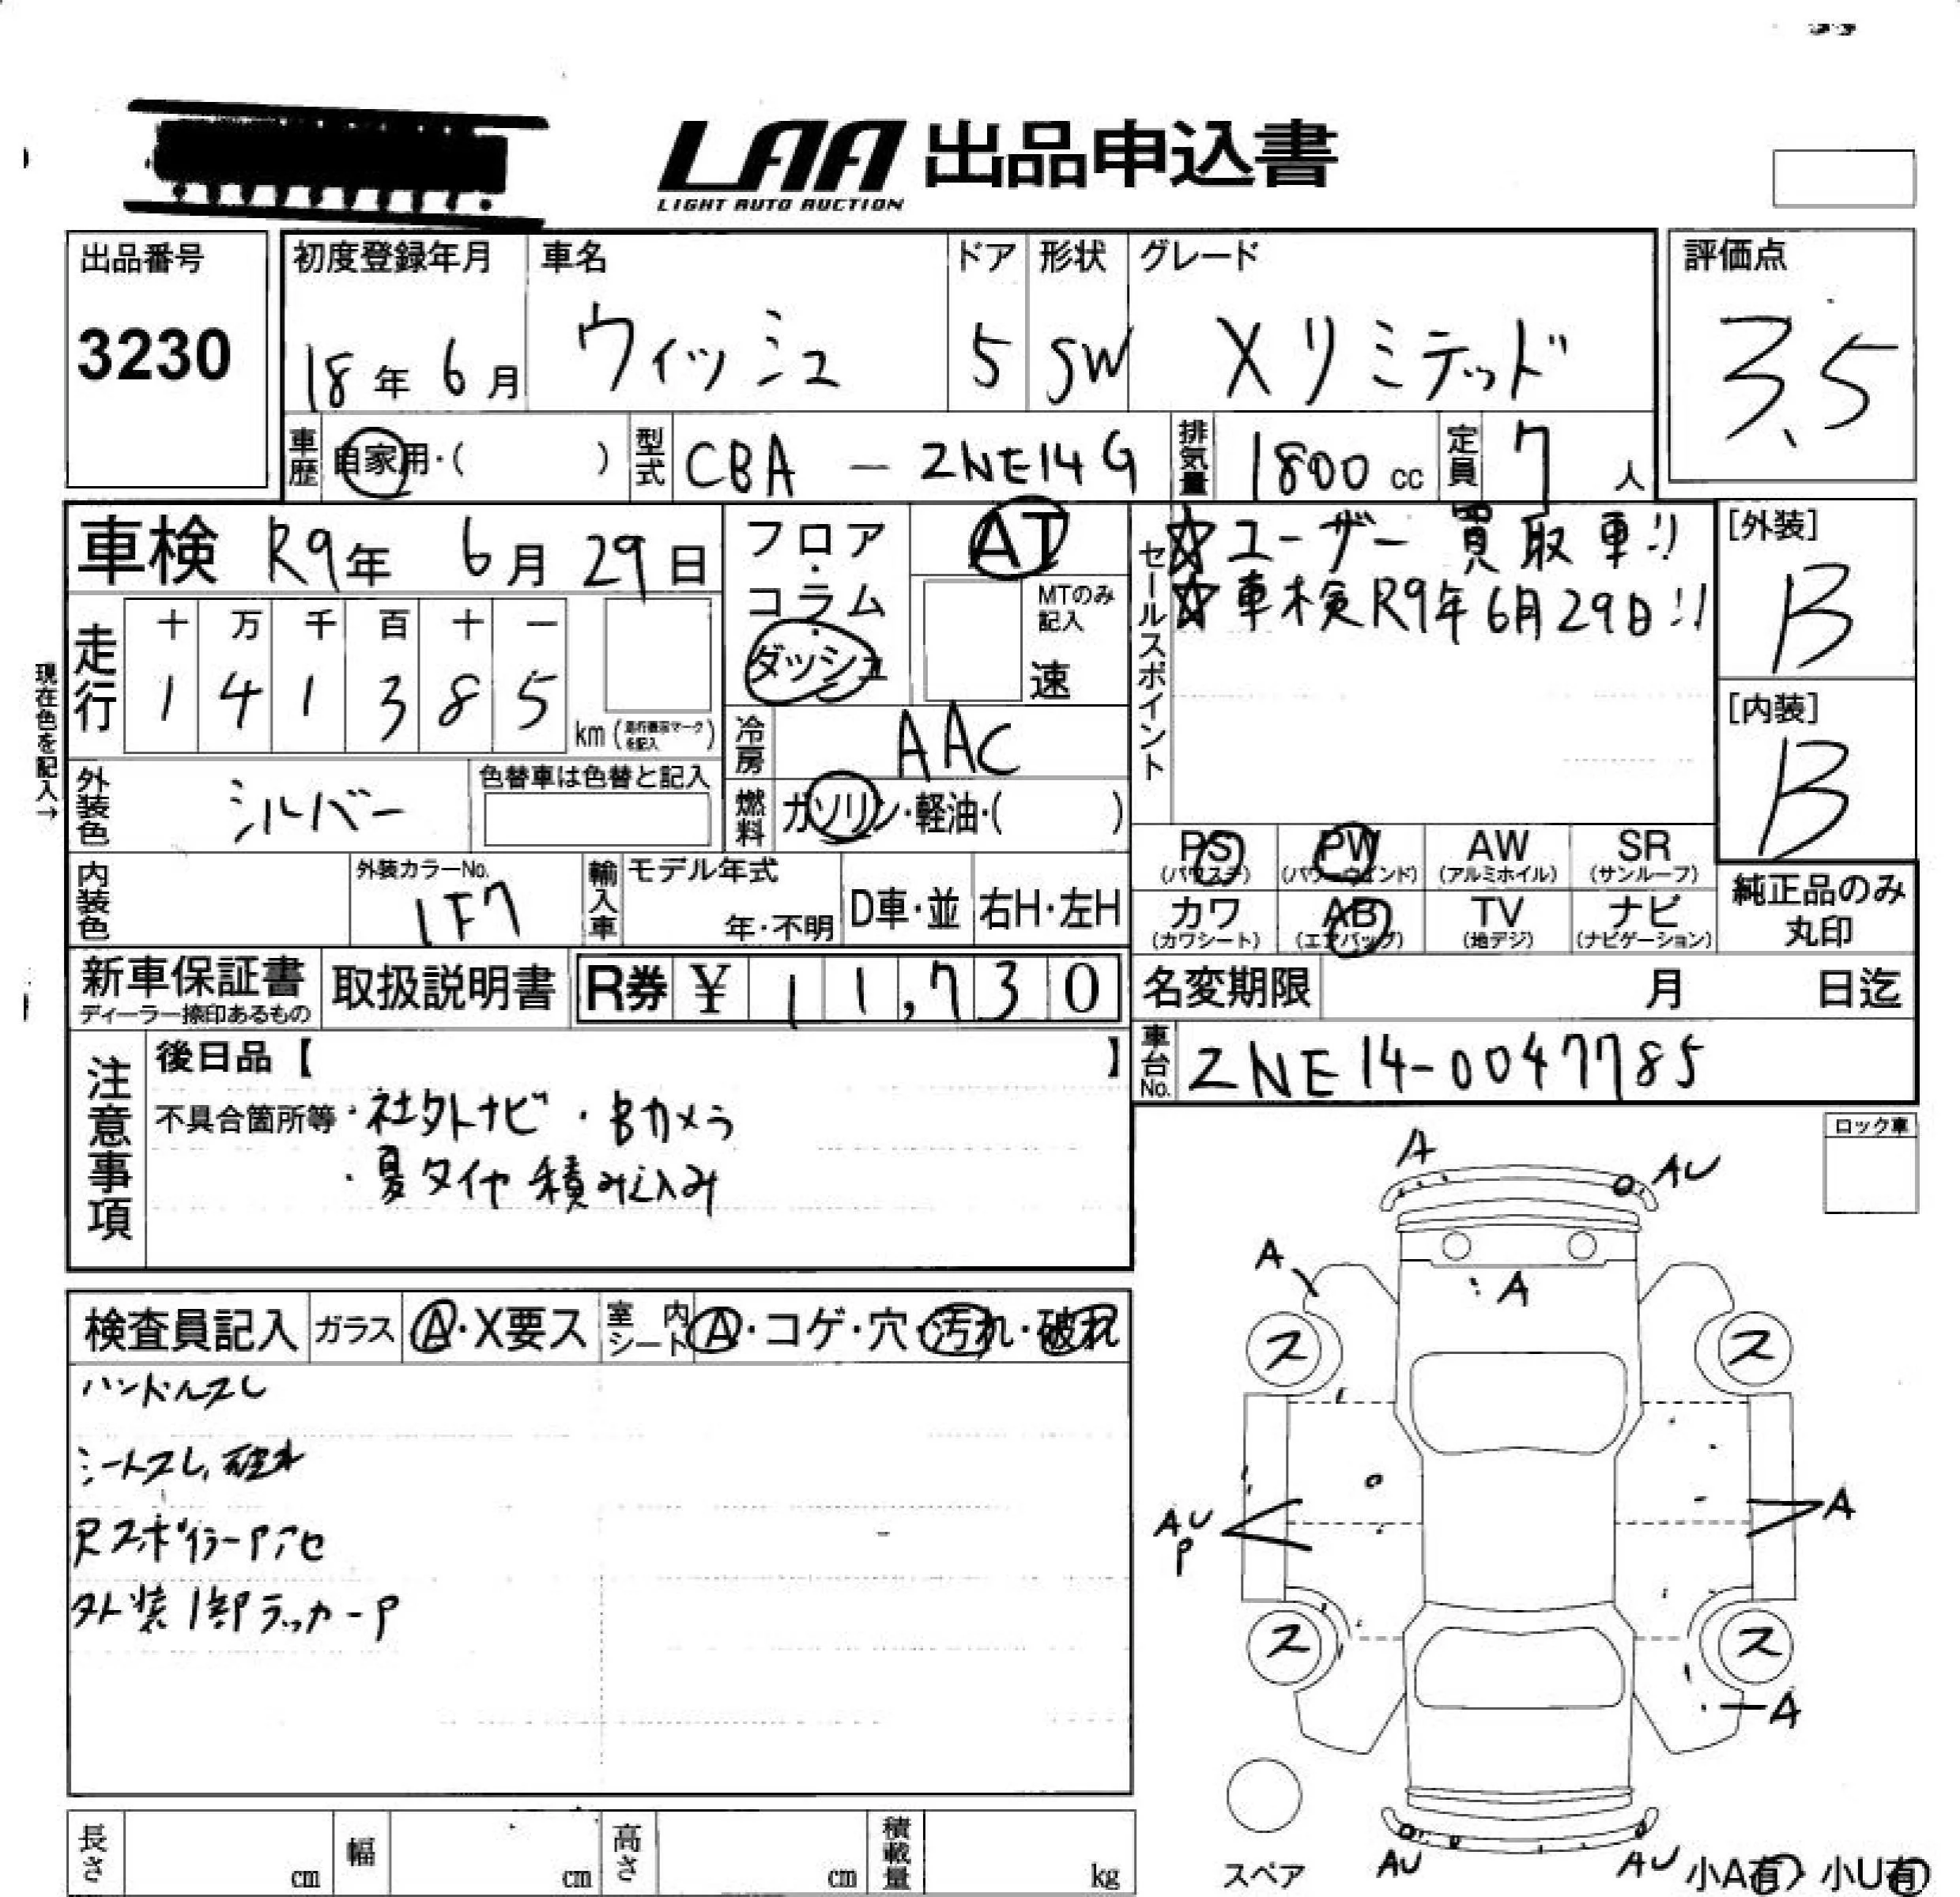 LAA 出品申込書
LIGHT AUTO AUCTION
出品番号
3230
初度登録年月
18年 6月
車名
ウィッシュ
ドア
5
形状
SW
グレード
Xリミテッド
評価点
3.5
車歴 自家用・( )
型式 CBA - ZNE14G
排気量 1800 cc
定員 7 人
車検 R9年 6月 29日
走行
十 万 千 百 十 一
1 4 1 3 8 5
km (走行表示マークを記入)
現在色を記入→
外装色 シルバー
色替車は色替と記入
内装色
外装カラーNo.
1F7
輸入車
モデル年式
年・不明
D車・並
右H・左H
フロア・コラム・ダッシュ
AT
MTのみ記入
速
冷房 AAC
燃料 ガソリン・軽油・( )
セールスポイント
☆ユーザー買取車!!
☆車検R9年6月29日!!
[外装]
B
[内装]
B
PS (パワステ)
PW (パワーウインド)
AW (アルミホイル)
SR (サンルーフ)
カワ (カワシート)
AB (エアバッグ)
TV (地デジ)
ナビ (ナビゲーション)
純正品のみ
丸印
新車保証書
ディーラー捺印あるもの
取扱説明書
R券 ¥ 11,730
名変期限 月 日迄
車台No. ZNE14-0047785
注意事項
後日品【 】
不具合箇所等・社外ナビ ・Bカメラ
・夏タイヤ積み込み
ロック車
検査員記入
ガラス A・X要ス
室内シート A・コゲ・穴・汚れ・破れ
ハンドルスレ
シートスレ、破れ
Rスポイラー Pアセ
外装1部ラッカーP
A
AU
A
A
ス
ス
AU
P
A
ス
ス
A
スペア
AU
AU
小A有 小U有
長さ cm
幅 cm
高さ cm
積載量 kg